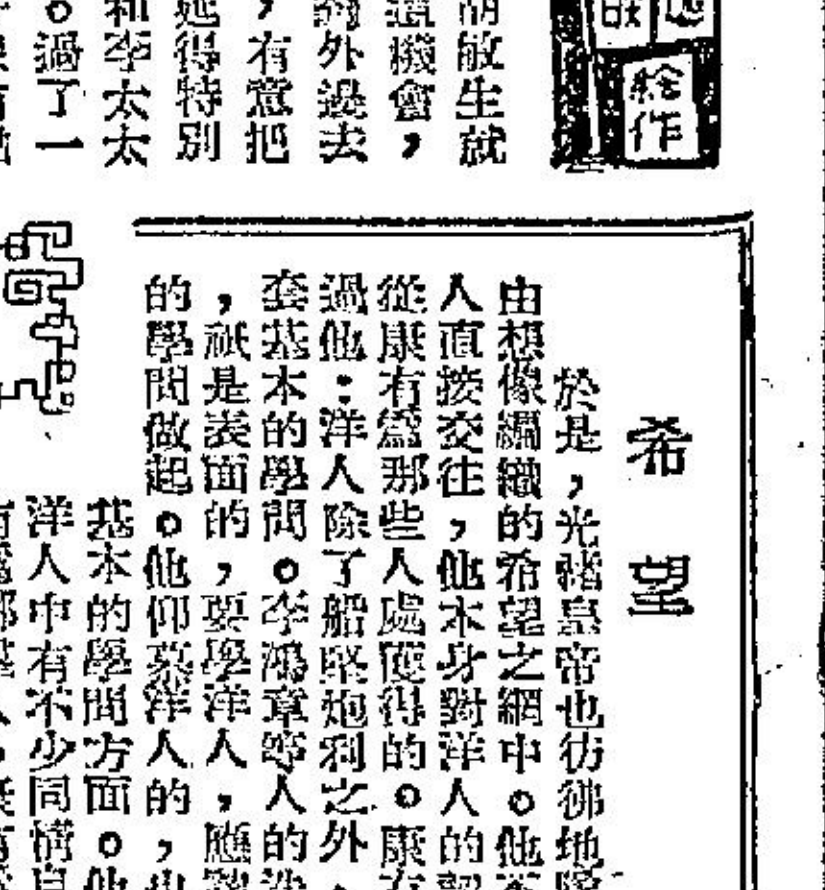 繪作
胡敏生就
機會，
外邊去
，有意把
得特別
和李太太
。過了一
希望
於是，光緒皇帝也彷彿地
由想像編織的希望之網中。他
人直接交往，他本身對洋人的
從康有為那些人處獲得的。康
過他：洋人除了船堅炮利之外，
套基本的學問。李鴻章等人的
，祇是表面的，要學洋人，應
的學問做起。他仰慕洋人的，也
基本的學問方面。他
洋人中有不少同情